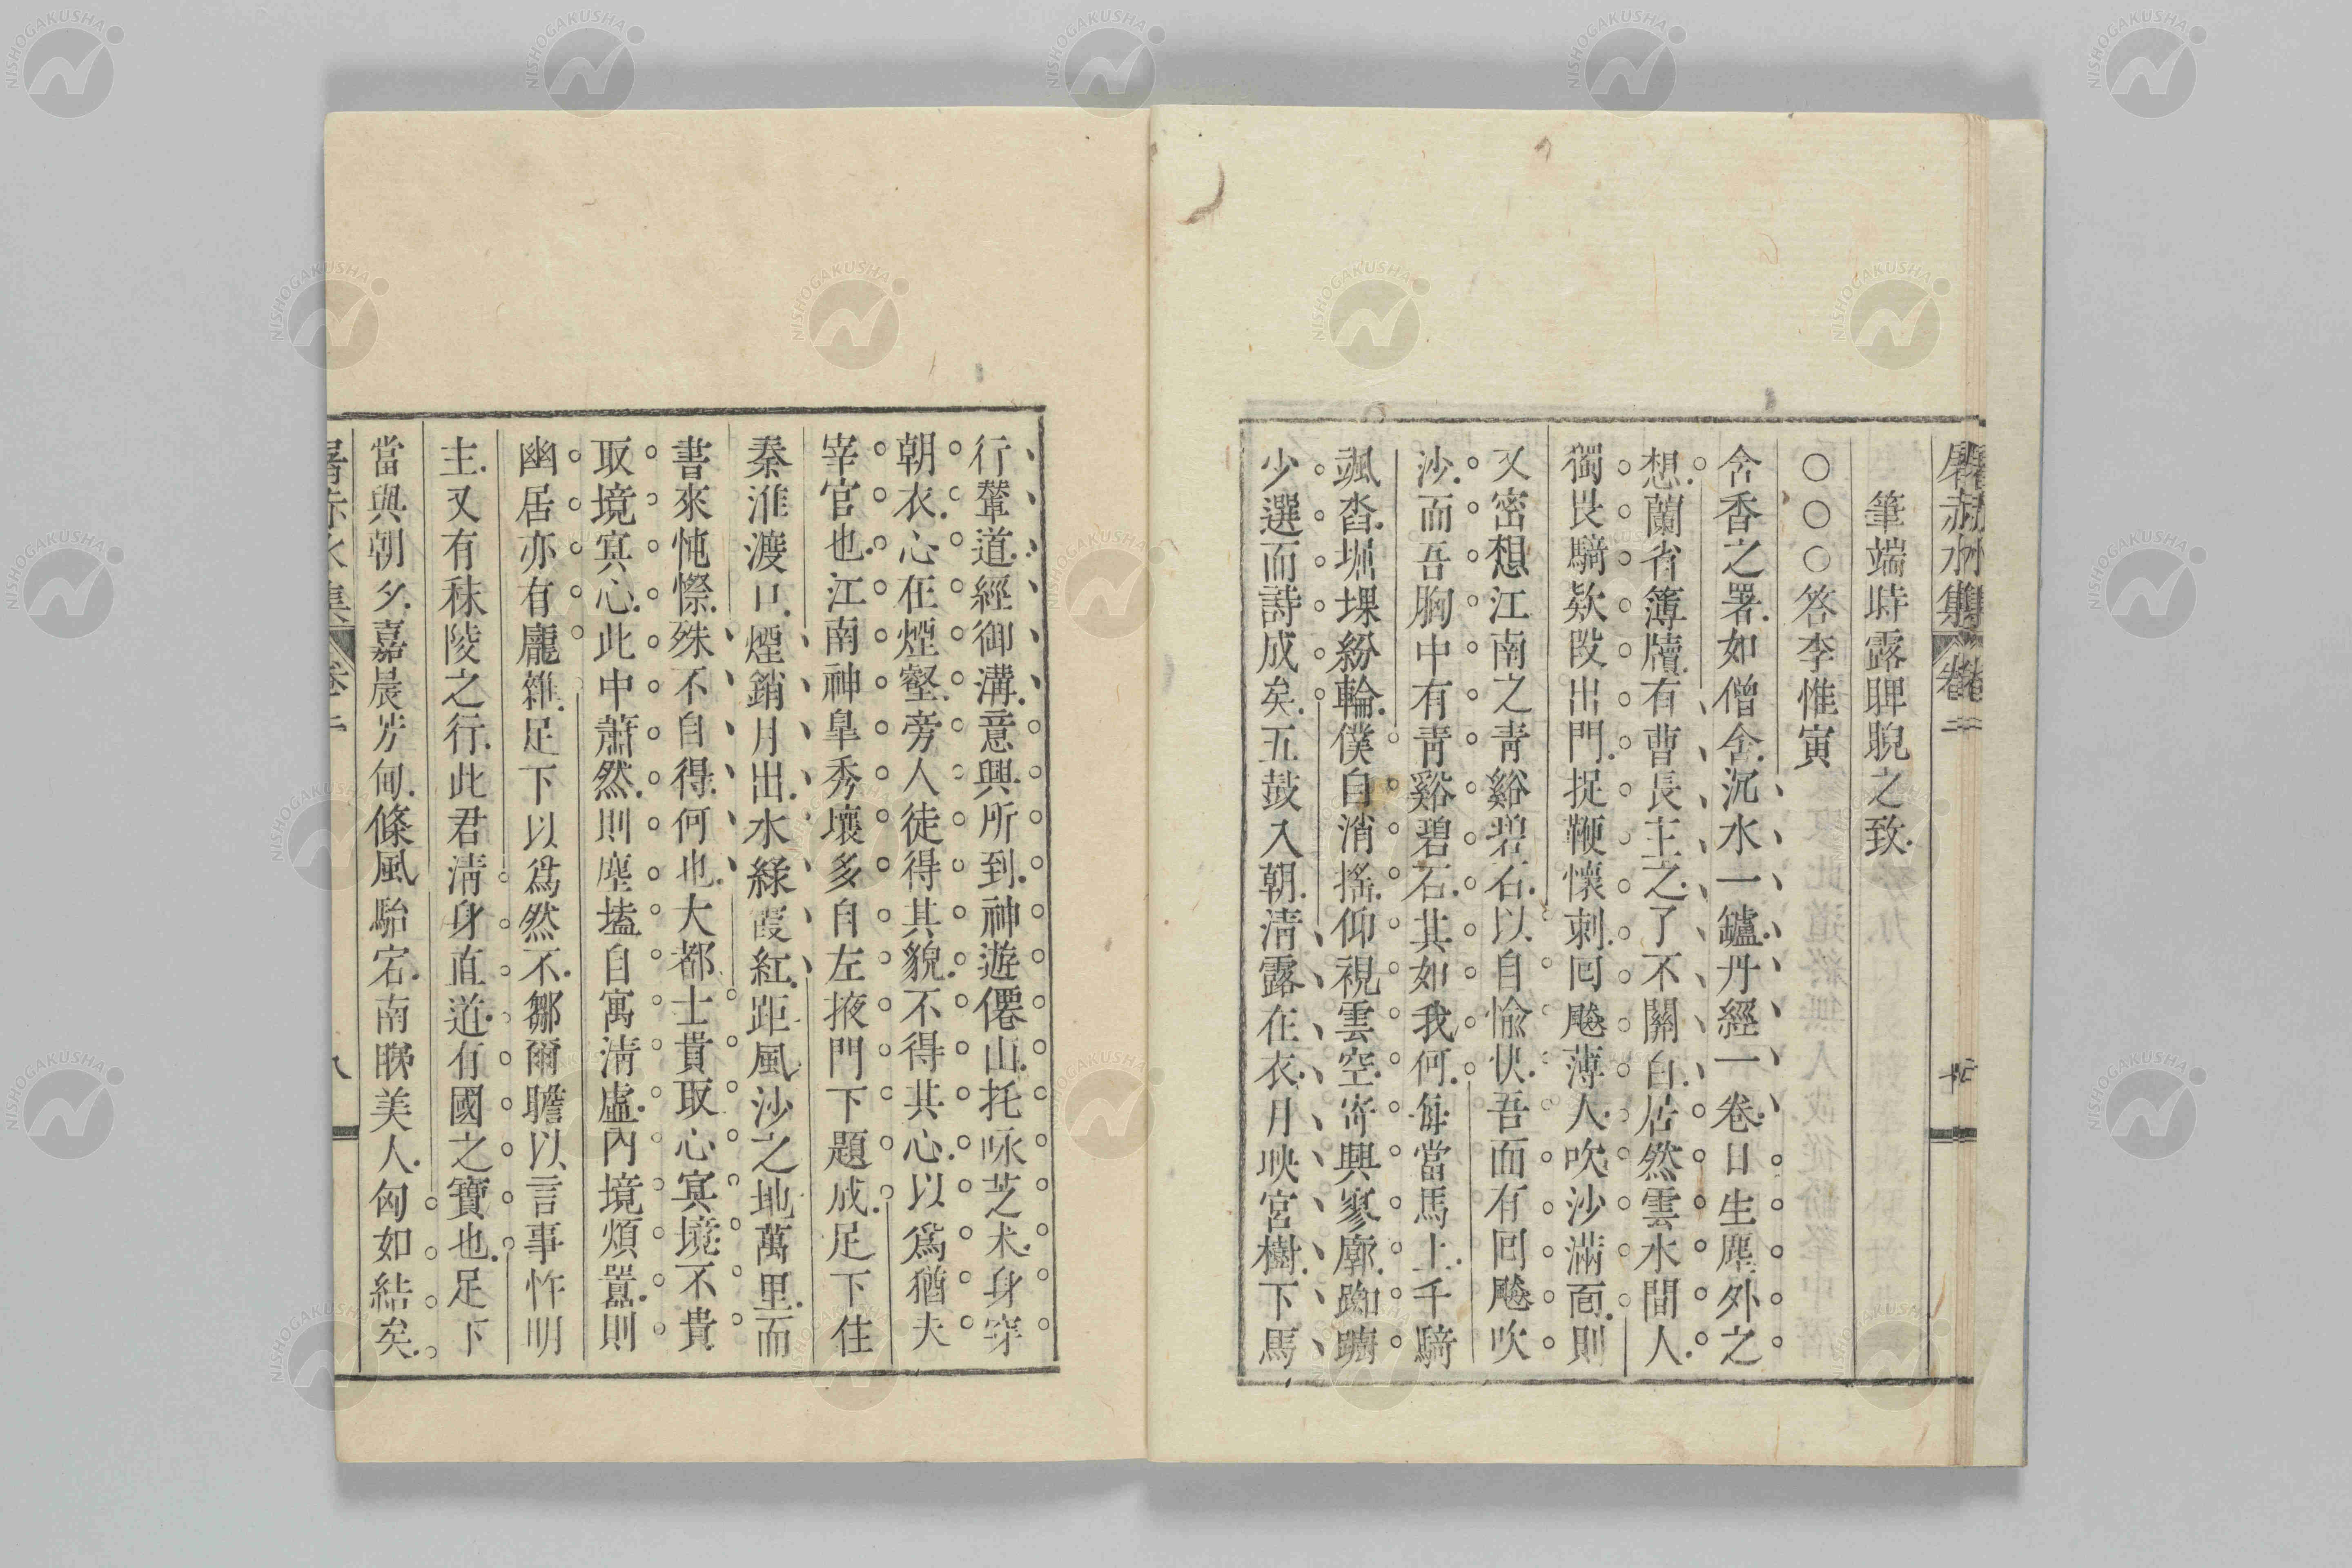 屠赤水集 卷二
筆端時露睥睨之致
○○○答李惟寅
含香之署如僧舍沉水一鑪丹經一卷日生塵外之
想蘭省簿牘有曹長主之了不關白居然雲水間人
獨畏騎欵段出門捉鞭懷刺回飈薄人吹沙滿面則
又密想江南之青谿碧石以自愉快吾面有回飈吹
沙而吾胸中有青谿碧石其如我何每當馬上千騎
颯沓堀堁紛輪僕自消搖仰視雲空寄興寥廓踟躕
少選而詩成矣五鼓入朝清露在衣月映宮樹下馬
行輦道經御溝意興所到神遊僊山托咏芝朮身穿
朝衣心在煙壑旁人徒得其貌不得其心以爲猶夫
宰官也江南神皐秀壤多自左掖門下題成足下住
秦淮渡口煙銷月出水綠霞紅距風沙之地萬里而
書來忳憏殊不自得何也大都士貴取心冥境不貴
取境冥心此中蕭然則塵壒自寓淸虛內境煩囂則
幽居亦有龐雜足下以爲然不鄒爾瞻以言事忤明
主又有秣陵之行此君清身直道有國之寶也足下
當與朝夕嘉晨芳甸條風駘宕南睇美人匈如結矣
屠赤水集 卷二
八
NISHOGAKUSHA